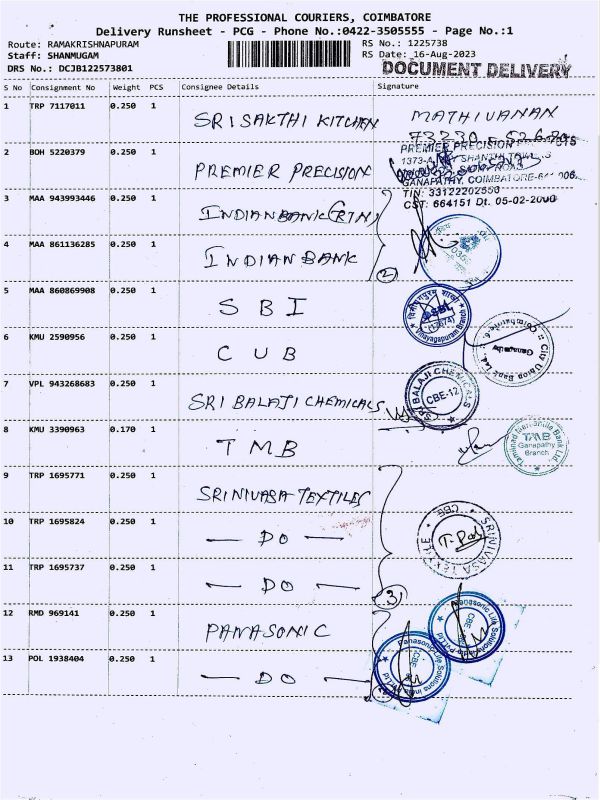 THE PROFESSIONAL COURIERS, COIMBATORE
Delivery Runsheet - PCG - Phone No.:0422-3505555 - Page No.:1
Route: RAMAKRISHNAPURAM RS No.: 1225738
Staff: SHANMUGAM RS Date: 16-Aug-2023
DRS No.: DCJB122573801 DOCUMENT DELIVERY
S No Consignment No Weight PCS Consignee Details Signature
1 TRP 7117011 0.250 1 SRI SAKTHI KITCHEN MATHIVANAN
2 BOH 5220379 0.250 1 PREMIER PRECISION PREMIER PRECISION
GANAPATHY, COIMBATORE
TIN: 33122202550
CST: 664151 Dt. 05-02-2000
3 MAA 943993446 0.250 1 INDIAN BANK (RTN)
4 MAA 861136285 0.250 1 INDIAN BANK
2
5 MAA 860869908 0.250 1 SBI Vinayagapuram Branch
6 KMU 2590956 0.250 1 CUB City Union Bank Ltd., Ganapathy
7 VPL 943268683 0.250 1 SRI BALAJI CHEMICALS SRI BALAJI CHEMICALS CBE-12
8 KMU 3390963 0.170 1 TMB Tamilnad Mercantile Bank Ltd. Ganapathy Branch
9 TRP 1695771 0.250 1 SRINIVASA TEXTILES
10 TRP 1695824 0.250 1 — DO — SRINIVASA TEXTILE CBE
11 TRP 1695737 0.250 1 — DO —
3
12 RMD 969141 0.250 1 PANASONIC Panasonic Life Solutions India Pvt Ltd CBE
13 POL 1938404 0.250 1 — DO — Panasonic Life Solutions India Pvt Ltd CBE